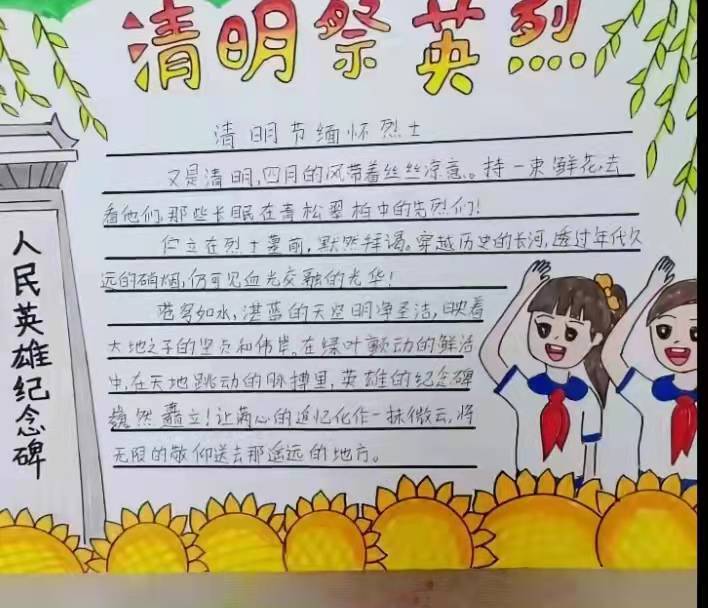 清明祭英烈
清明节缅怀烈士
又是清明,四月的风带着丝丝凉意。持一束鲜花,去
看他们,那些长眠在青松翠柏中的先烈们!
伫立在烈士墓前,默然拜谒。穿越历史的长河,透过年代久
远的硝烟,仍可见血光交融的光华!
苍穹如水,湛蓝的天空明净圣洁,映着
大地之子的坚贞和伟岸。在绿叶颤动的鲜活
中,在天地跳动的脉搏里,英雄的纪念碑
巍然矗立!让满心的追忆化作一抹微云,将
无限的敬仰送去那遥远的地方。
人民英雄纪念碑